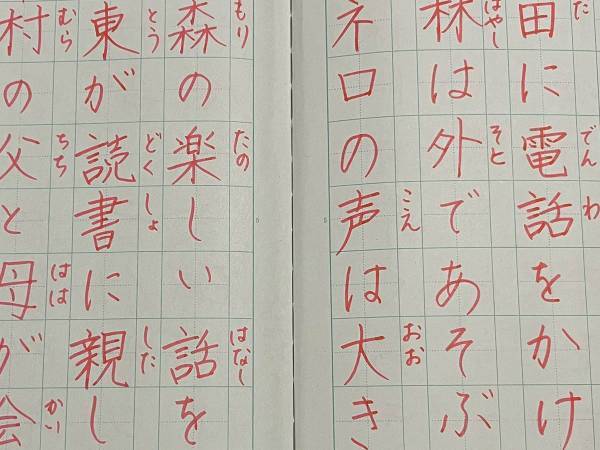 た でん わ
田に電話をかけ
はやし そと
林は外であそぶ
こえ おお
ネロの声は大き
もり たの はなし
森の楽しい話を
とう どく しょ した
東が読書に親し
むら ちち はは かい
村の父と母が会